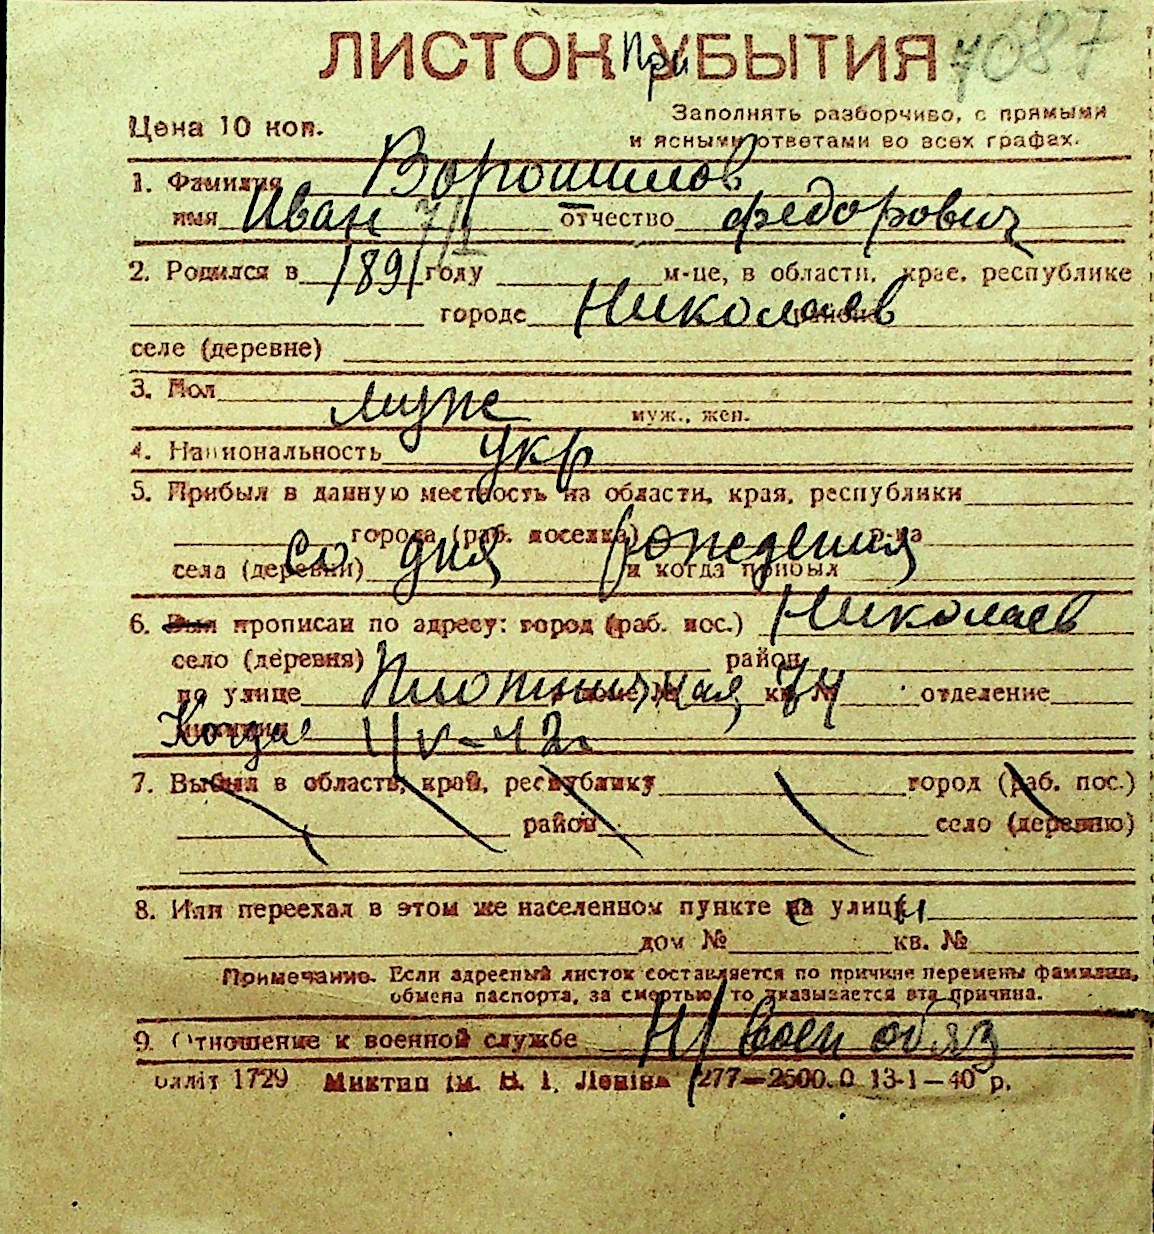 ЛИСТОК При УБЫТИЯ 7087
Цена 10 коп.
Заполнять разборчиво, с прямыми
и ясными ответами во всех графах.
1. Фамилия Ворошилов
имя Иван отчество Федорович
2. Родился в 1891 году м-це, в области, крае, республике
городе Николаев районе
селе (деревне)
3. Пол муж
муж., жен.
4. Национальность укр
5. Прибыл в данную местность из области, края, республики
города (раб. поселка) р-на
со дня рождения
села (деревни) и когда прибыл
6. Был прописан по адресу: город (раб. пос.) Николаев
село (деревня) район
по улице Плотничная, дом № кв. № 74 отделение
милиции Когда
7. Выбыл в область, край, республику город (раб. пос.)
район село (деревню)
8. Или переехал в этом же населенном пункте с улицы
дом № кв. №
Примечание. Если адресный листок составляется по причине перемены фамилии,
обмена паспорта, за смертью, то указывается эта причина.
9. Отношение к военной службе Н/воен обяз
Обліт 1729 Миктип ім. В. І. Леніна 277—2500.0 13-1—40 р.